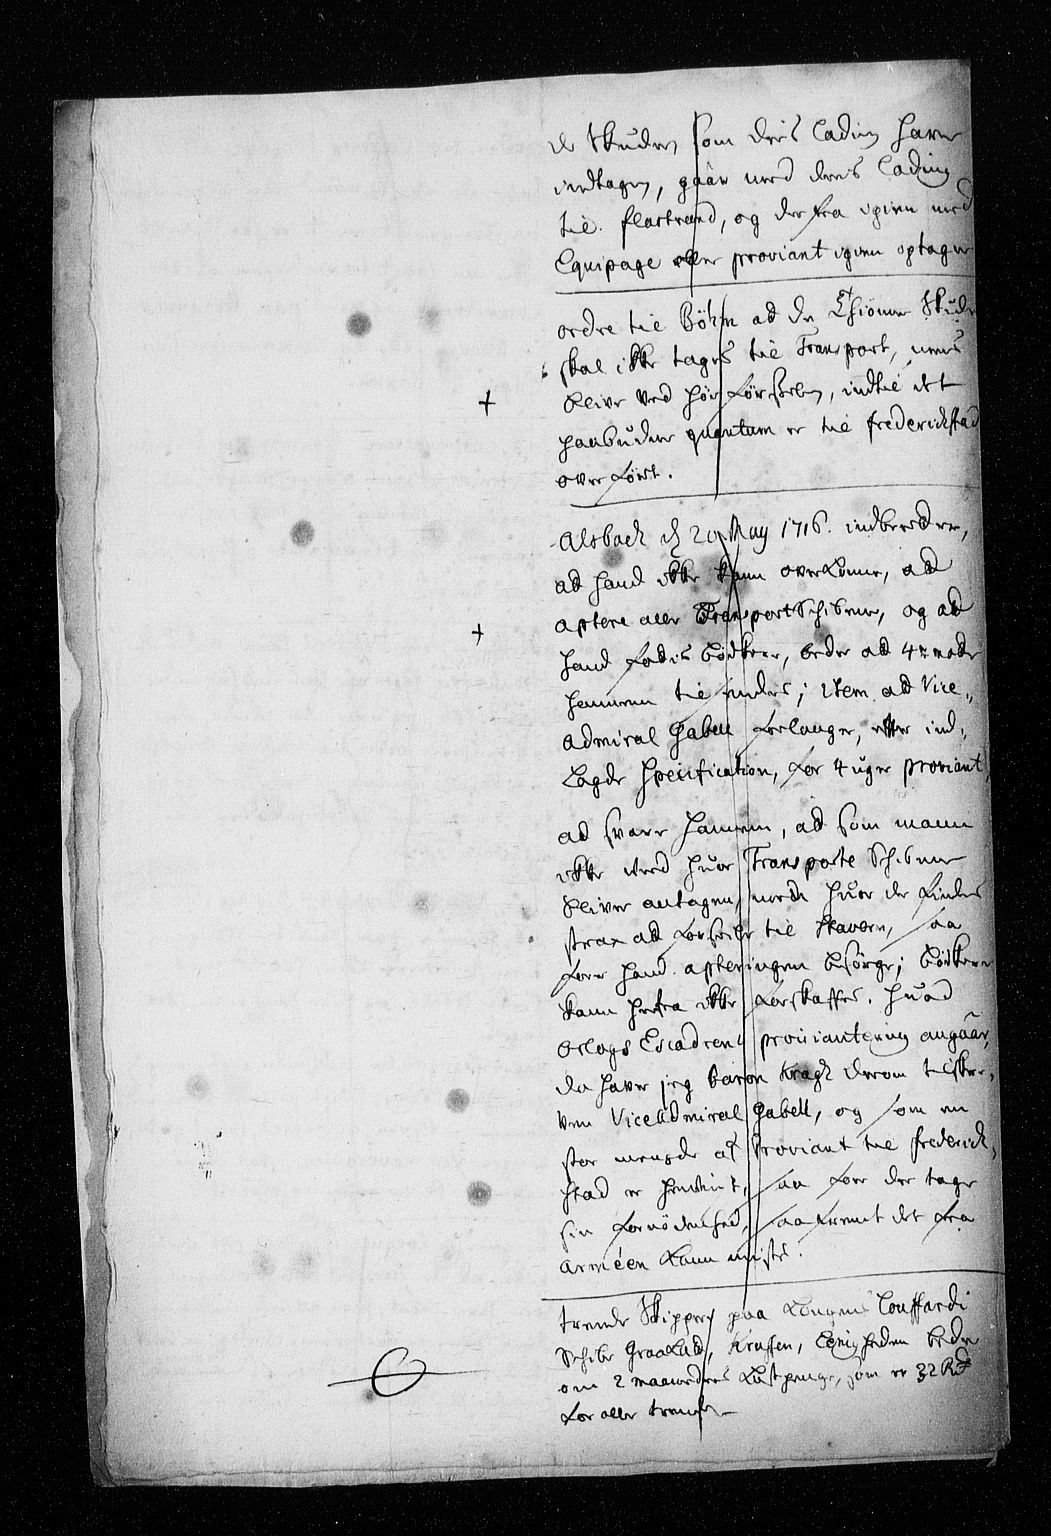 de Skuder som deris Lading haver
indtagen, gaar med deris Lading
til flastrand, og der fra igien med
Equipage eller proviant igien optager
ordre til Böhn ad de skiönne Skuder
skal ikke tages til Transport, mens
blive ved höi förselen, indtil det
paabudene quantum er til frederichstad
over fört.
Alsbach d 20 May 1716. indberetter,
ad hand ikke kann overkomme, ad
aptere alle Transport Schibene, og ad
hand fattis bödkere, beder ad 4re maatte
hannem til sendes; item ad Vice,,
Admiral Gabell forlanger, efter ind,,
lagde Specification, for 4 uger proviant,
ad svare hannem, ad som mann
ikke veed huor Transporte Schibene
bliver antagen, mens huor de findes
strax ad forseyle til Stavern, saa
faar hand apteringen besörge; bödkere
kann herfra ikke forskaffes. huad
Orlogs Escadrens proviantering angaar,
da haver jeg baron Kragh derom tilskre,
ven Viceadmiral Gabell, og som en
stor mengde af Proviant til frederich,
stad er henseint, saa faar der tage
sin fornödenhed, saafremt det fra
Arméen kann mistes.
trende Skippere paa Kongens Couffardi
Schibe Graalad, Kruffen, Enigheden beder
om 2 maaneders kostpenge, som er 32 Rd
for alle trende